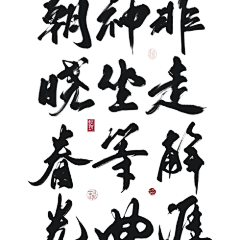 非走解涯
神坐笔曲
朝晓春光